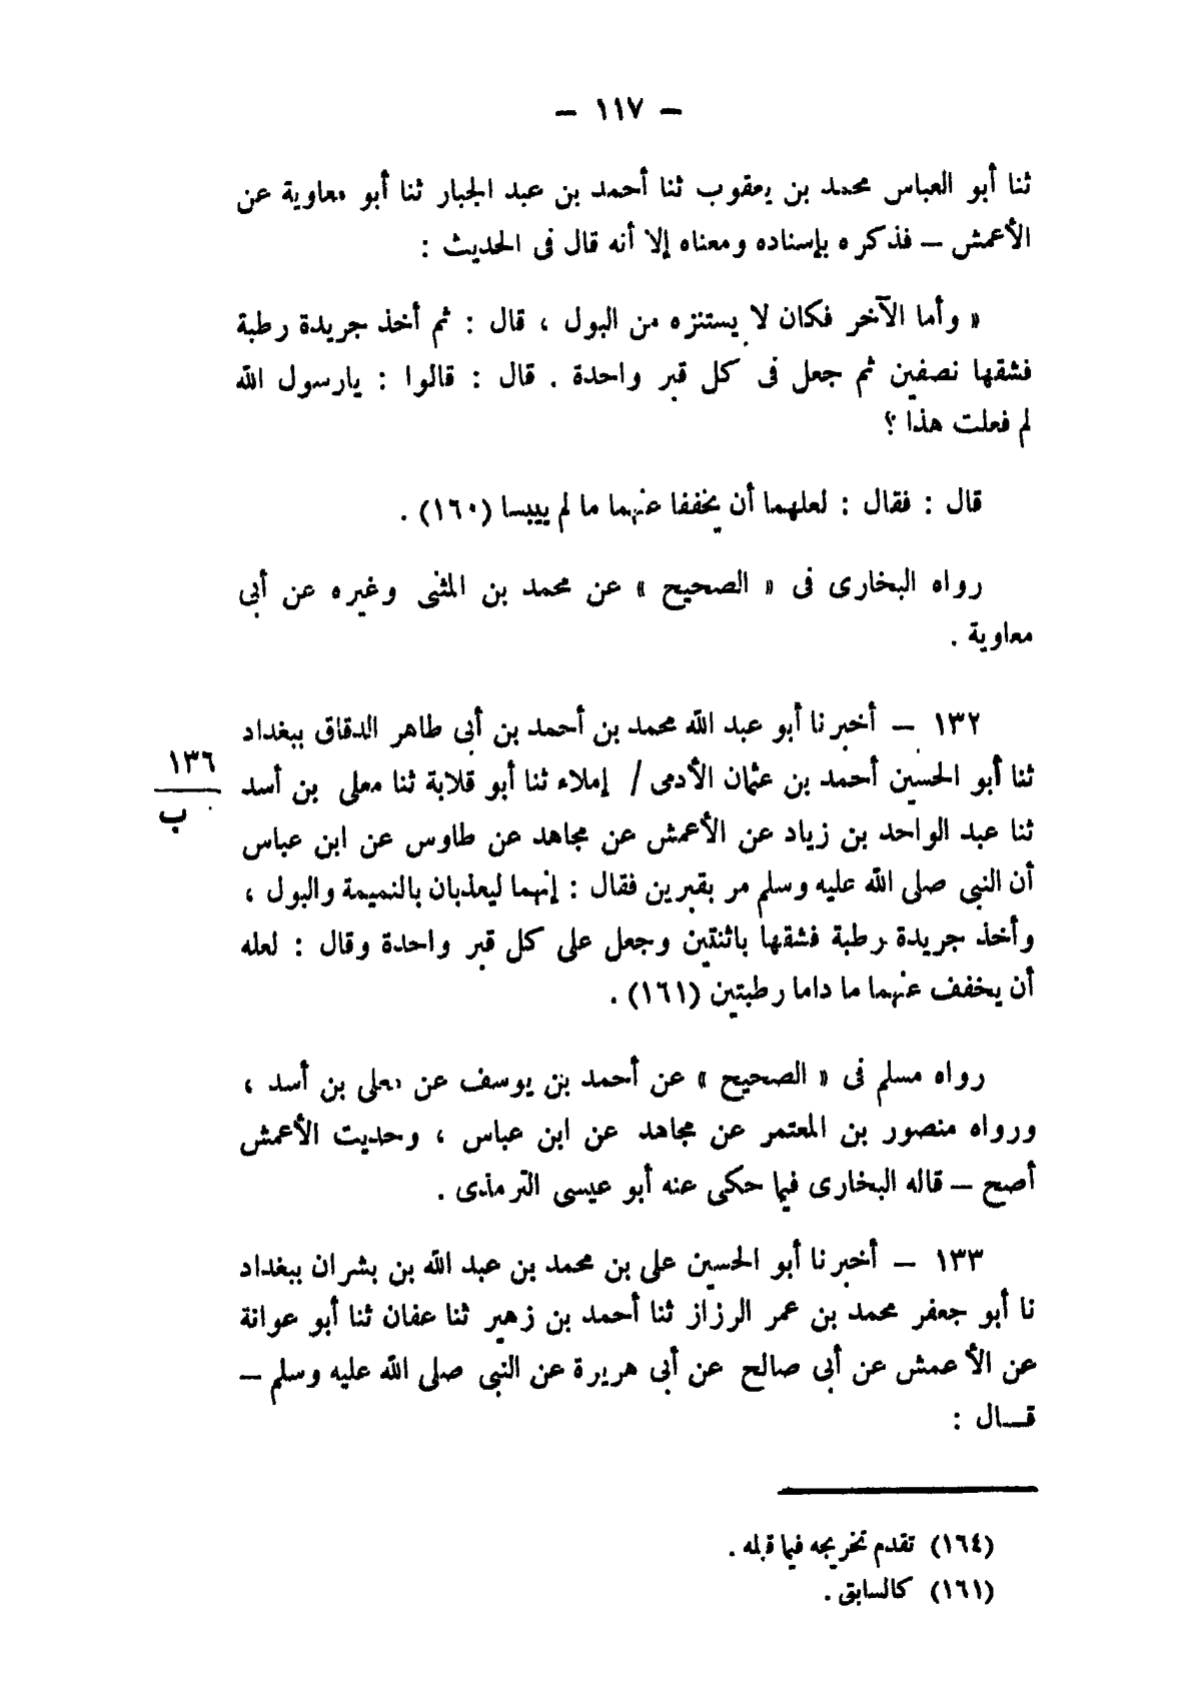 — ١١٧ —
ثنا أبو العباس محمد بن يعقوب ثنا أحمد بن عبد الجبار ثنا أبو معاوية عن
الأعمش — فذكره بإسناده ومعناه إلا أنه قال فى الحديث :
« وأما الآخر فكان لا يستنزه من البول ، قال : ثم أخذ جريدة رطبة
فشقها نصفين ثم جعل فى كل قبر واحدة . قال : قالوا : يارسول الله
لم فعلت هذا ؟
قال : فقال : لعلهما أن يخففا عنهما ما لم ييبسا (١٦٠) .
رواه البخارى فى « الصحيح » عن محمد بن المثنى وغيره عن أبى
معاوية .
١٣٢ — أخبرنا أبو عبد الله محمد بن أحمد بن أبى طاهر الدقاق ببغداد
ثنا أبو الحسين أحمد بن عثمان الأدمى / إملاء ثنا أبو قلابة ثنا معلى بن أسد
١٣٦
ب
ثنا عبد الواحد بن زياد عن الأعمش عن مجاهد عن طاوس عن ابن عباس
أن النبى صلى الله عليه وسلم مر بقبرين فقال : إنهما ليعذبان بالنميمة والبول ،
وأخذ جريدة رطبة فشقها باثنتين وجعل على كل قبر واحدة وقال : لعله
أن يخفف عنهما ما داما رطبتين (١٦١) .
رواه مسلم فى « الصحيح » عن أحمد بن يوسف عن معلى بن أسد ،
ورواه منصور بن المعتمر عن مجاهد عن ابن عباس ، وحديت الأعمش
أصح — قاله البخارى فيما حكى عنه أبو عيسى الترمذى .
١٣٣ — أخبرنا أبو الحسين على بن محمد بن عبد الله بن بشران ببغداد
نا أبو جعفر محمد بن عمر الرزاز ثنا أحمد بن زهير ثنا عفان ثنا أبو عوانة
عن الأعمش عن أبى صالح عن أبى هريرة عن النبى صلى الله عليه وسلم —
قــال :
(١٦٤) تقدم تخريجه فيما قبله .
(١٦١) كالسابق .